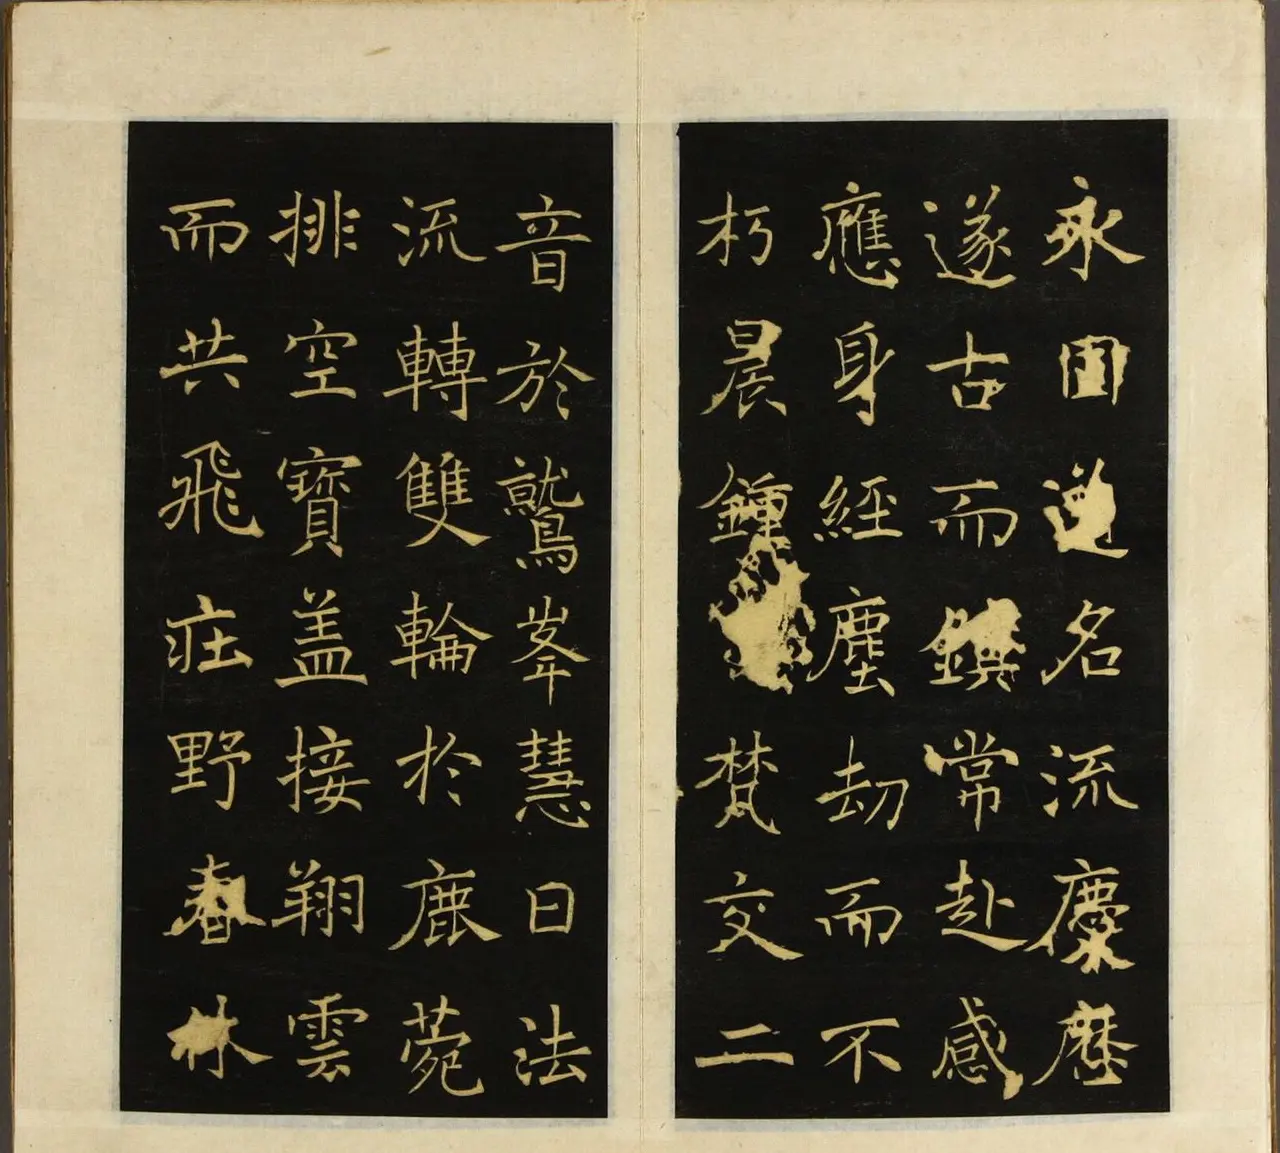 永固道名流慶歷
遂古而鎮常赴感
應身經塵劫而不
朽晨鍾梵交二
音於鷲峯慧日法
流轉雙輪於鹿菀
排空寶盖接翔雲
而共飛莊野春林